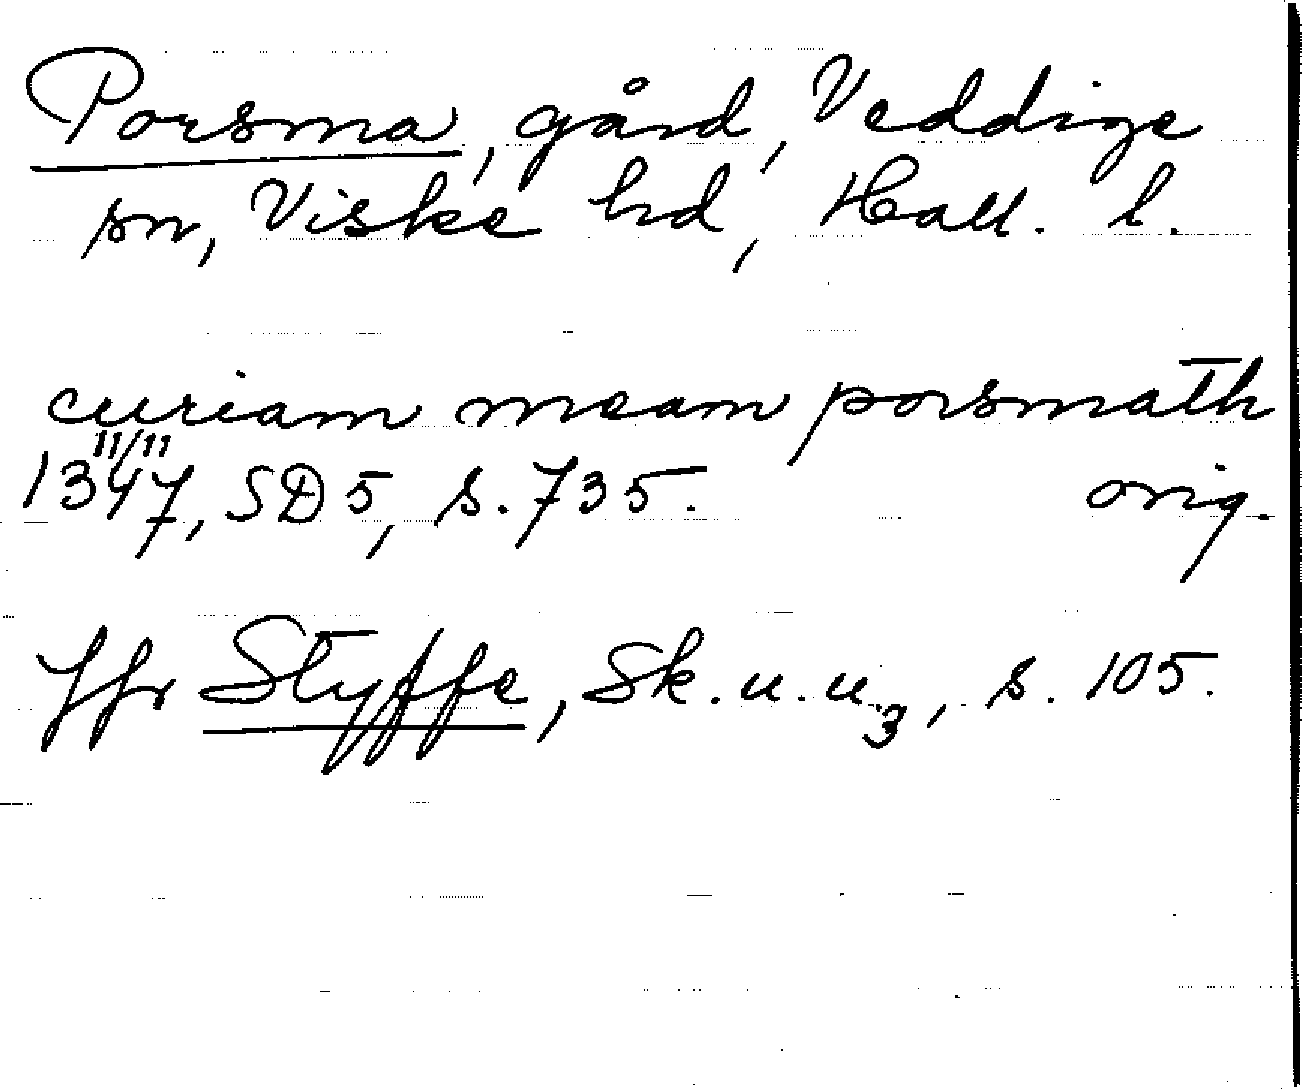 Porsma, gård, Veddige
sn, Viske hd, Hall. l.
curiam meam porsmath
11/11
1347, SD 5, s. 735. orig.
Jfr Styffe, Sk. u. u3, s. 105.